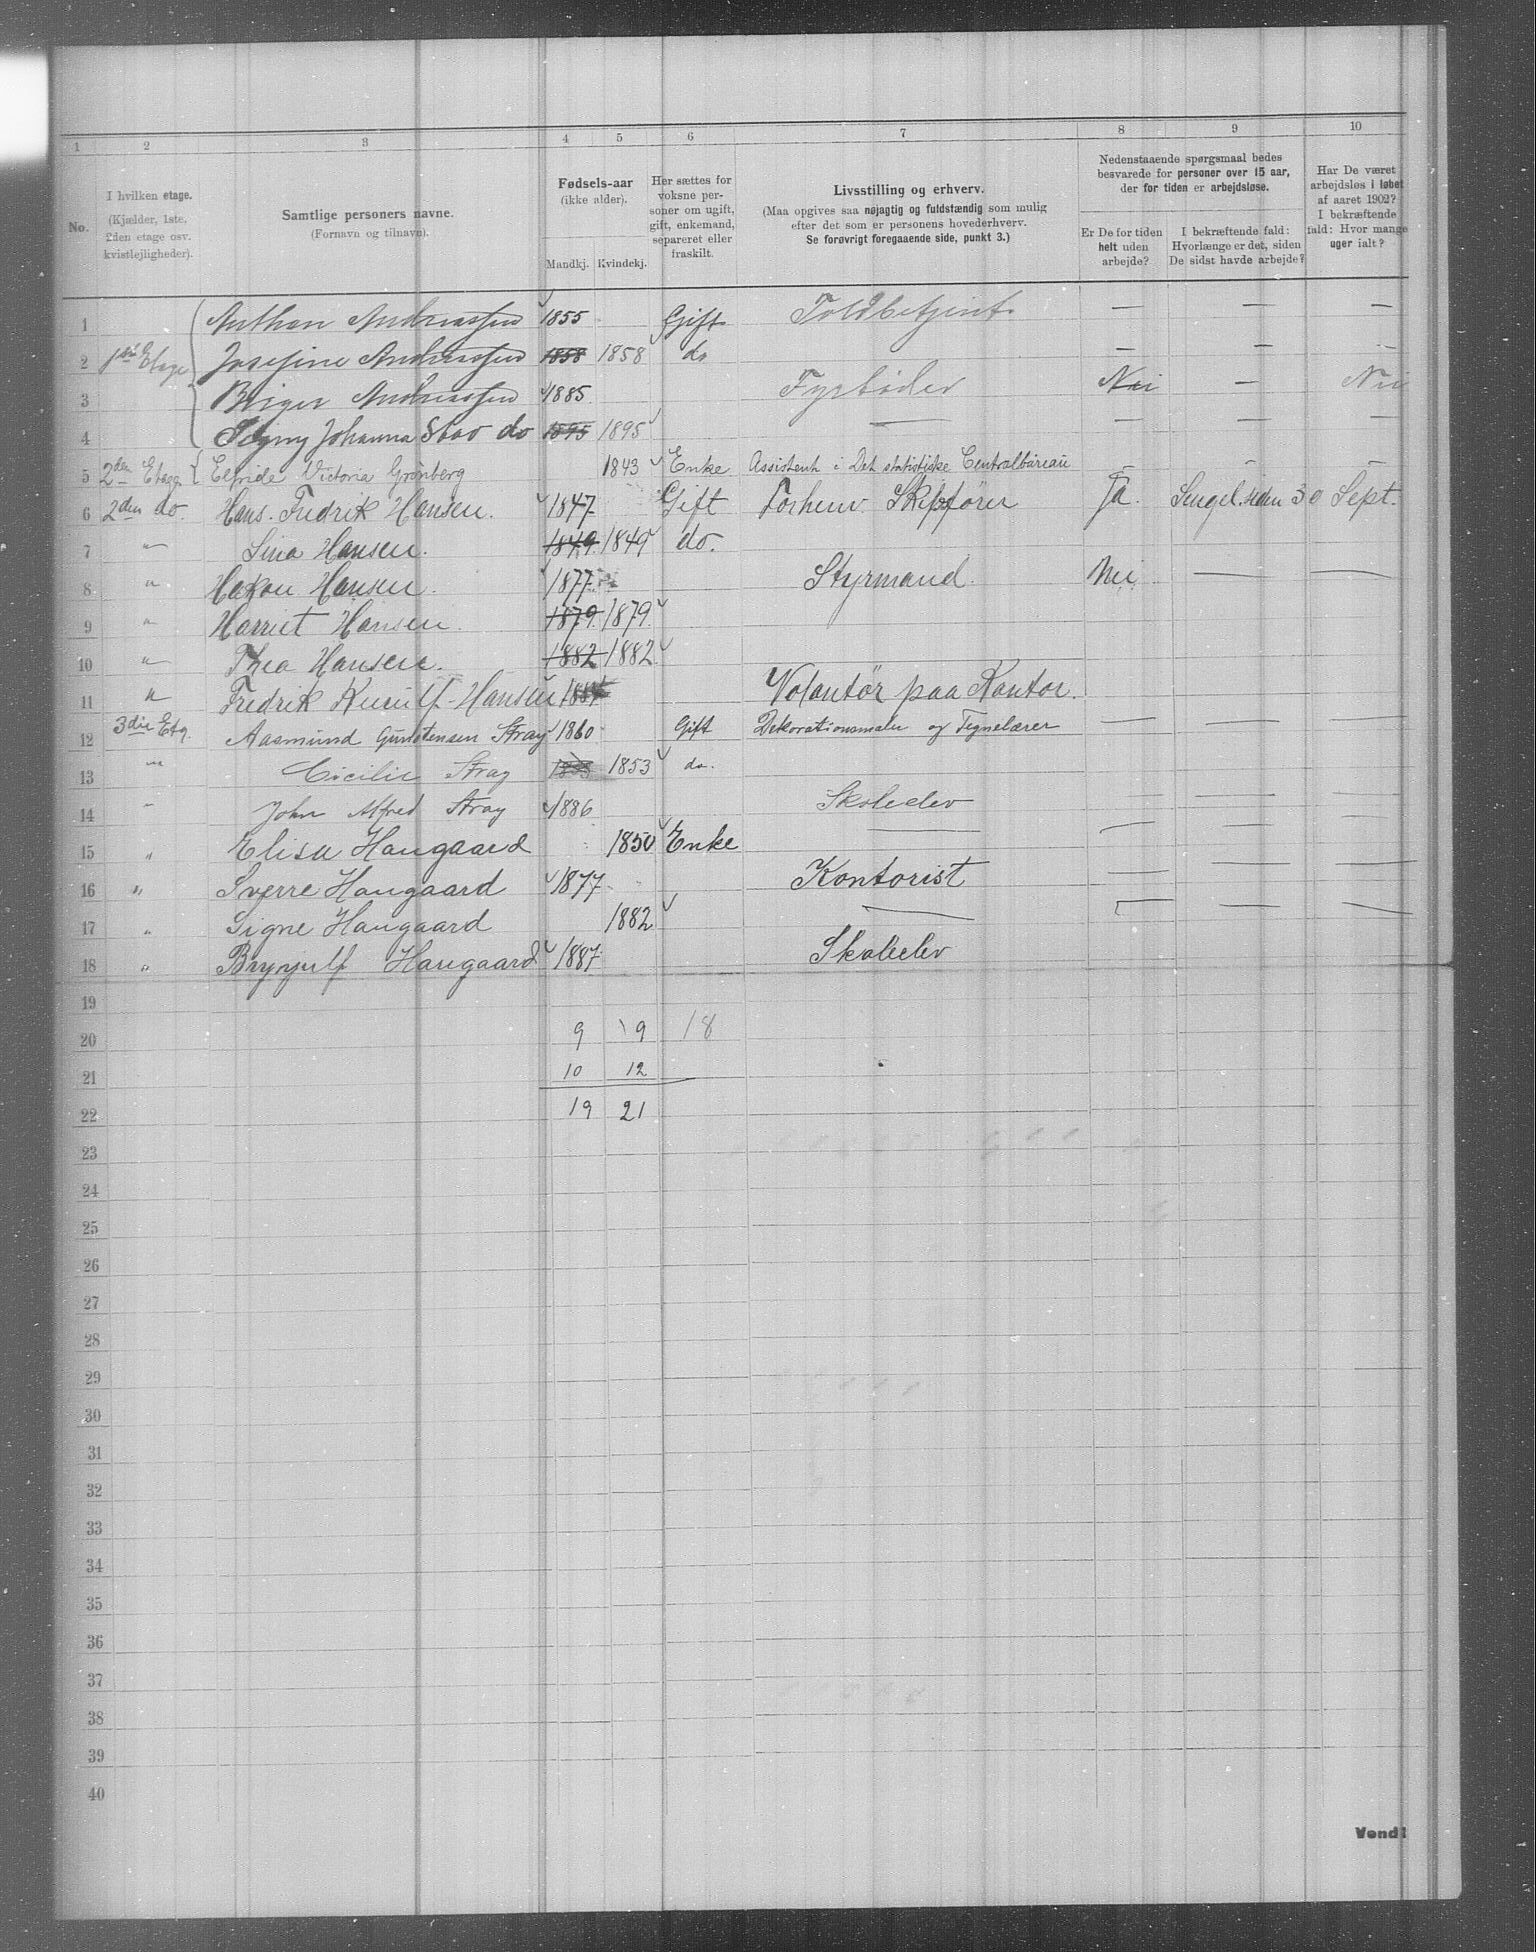 1 2 3 4 5 6 7 8 9 10
No.
I hvilken etage.
(Kjælder, 1ste,
2den etage osv.
kvistlejligheder).
Samtlige personers navne.
(Fornavn og tilnavn).
Fødsels-aar
(ikke alder).
Mandkj. Kvindekj.
Her sættes for
voksne per-
soner om ugift,
gift, enkemand,
separeret eller
fraskilt.
Livsstilling og erhverv.
(Maa opgives saa nøjagtig og fuldstændig som mulig
efter det som er personens hovederhverv.
Se forøvrigt foregaaende side, punkt 3.)
Nedenstaaende spørgsmaal bedes
besvarede for personer over 15 aar,
der for tiden er arbejdsløse.
Er De for tiden
helt uden
arbejde?
I bekræftende fald:
Hvorlænge er det, siden
De sidst havde arbejde?
Har De været
arbejdsløs i løbet
af aaret 1902?
I bekræftende
fald: Hvor mange
uger ialt?
1 Anthon Andreassen 1855 Gift Toldbetjent — — —
2 1ste Etage Josefine Andreassen 1858 1858 do — — —
3 Birger Andreassen 1885 Fyrbøder Nei — Nei
4 Johanna do 1895 1895 — — — —
5 2den Etage Elfride Victoria Grønberg 1843 Enke Assistent i Det statistiske Centralbureau — — —
6 2den do. Hans Fredrik Hansen. 1847 Gift Forhenv. Skibsfører Ja. siden 30 Sept.
7 " Lina Hansen. 1849 1849 do.
8 " Hakon Hansen. 1877 Styrmand. Nei. — —
9 " Harriet Hansen. 1879 1879
10 " Thea Hansen. 1882 1882
11 " Fredrik Hansen Volontør paa Kontor.
12 3die Etg. Aasmund Gunstensen Stray 1860 Gift Dekorationsmaler og Tegnelærer — — —
13 " Cicilie Stray 1853 1853 do.
14 " John Alfred Stray 1886 Skoleelev — — —
15 " Elisa Haugaard 1850 Enke — — — —
16 " Sverre Haugaard 1877 Kontorist — — —
17 " Signe Haugaard 1882 — — — —
18 " Brynjulf Haugaard 1887 Skoleelev
19
20 9 9 18
21 10 12
22 19 21
23
24
25
26
27
28
29
30
31
32
33
34
35
36
37
38
39
40
Vend!